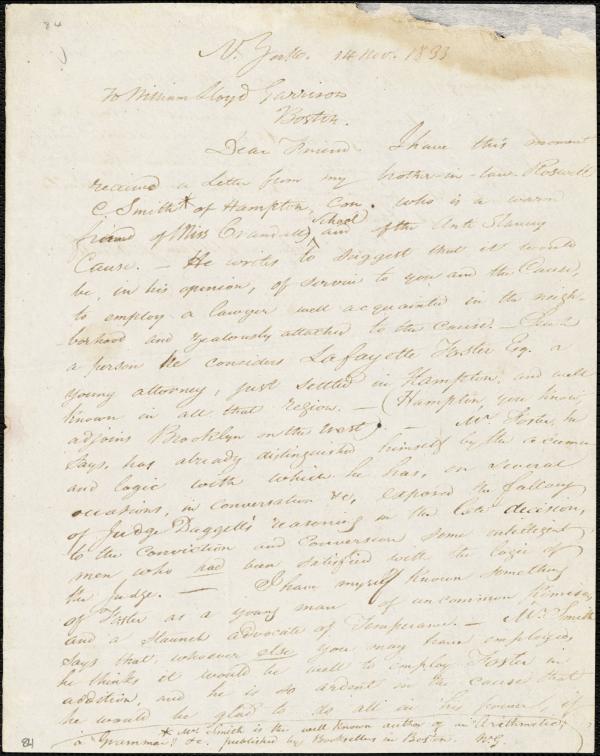 84
N. York. 14 Nov. 1833
To William Lloyd Garrison
Boston.
Dear Friend I have this moment
received a Letter from my brother-in-law Roswell
C Smith* of Hampton, Con. who is a warm
friend of Miss Crandall's ^ School and of the Anti Slavery
Cause. — He writes to suggest that it would
be, in his opinion, of service to you and the Cause,
to employ a lawyer well acquainted in the neigh-
borhood and zealously attached to the cause. — Such
a person he considers Lafayette Foster Esq. a
young attorney, just settled in Hampton, and well
known in all that region. — (Hampton, you know,
adjoins Brooklyn on the West) — Mr Foster, he
says, has already distinguished himself by the acumen
and logic with which he has, on several
occasions, in conversation &c, exposed the fallacy
of Judge Daggett's reasoning in the late decision,
to the conviction and conversion some intelligent
men who had been satisfied with the logic of
the Judge. — I have myself known something
of Foster as a young man of uncommon promise
and a staunch advocate of Temperance. — Mr Smith
says that, whoever else you may have employed,
he thinks it would be well to employ Foster in
addition, and he is so ardent in the cause that
he would be glad to do all in his power, if
* Mr Smith is the well known author of an Arithmetic,
a Grammar &c. published by Booksellers in Boston.
84